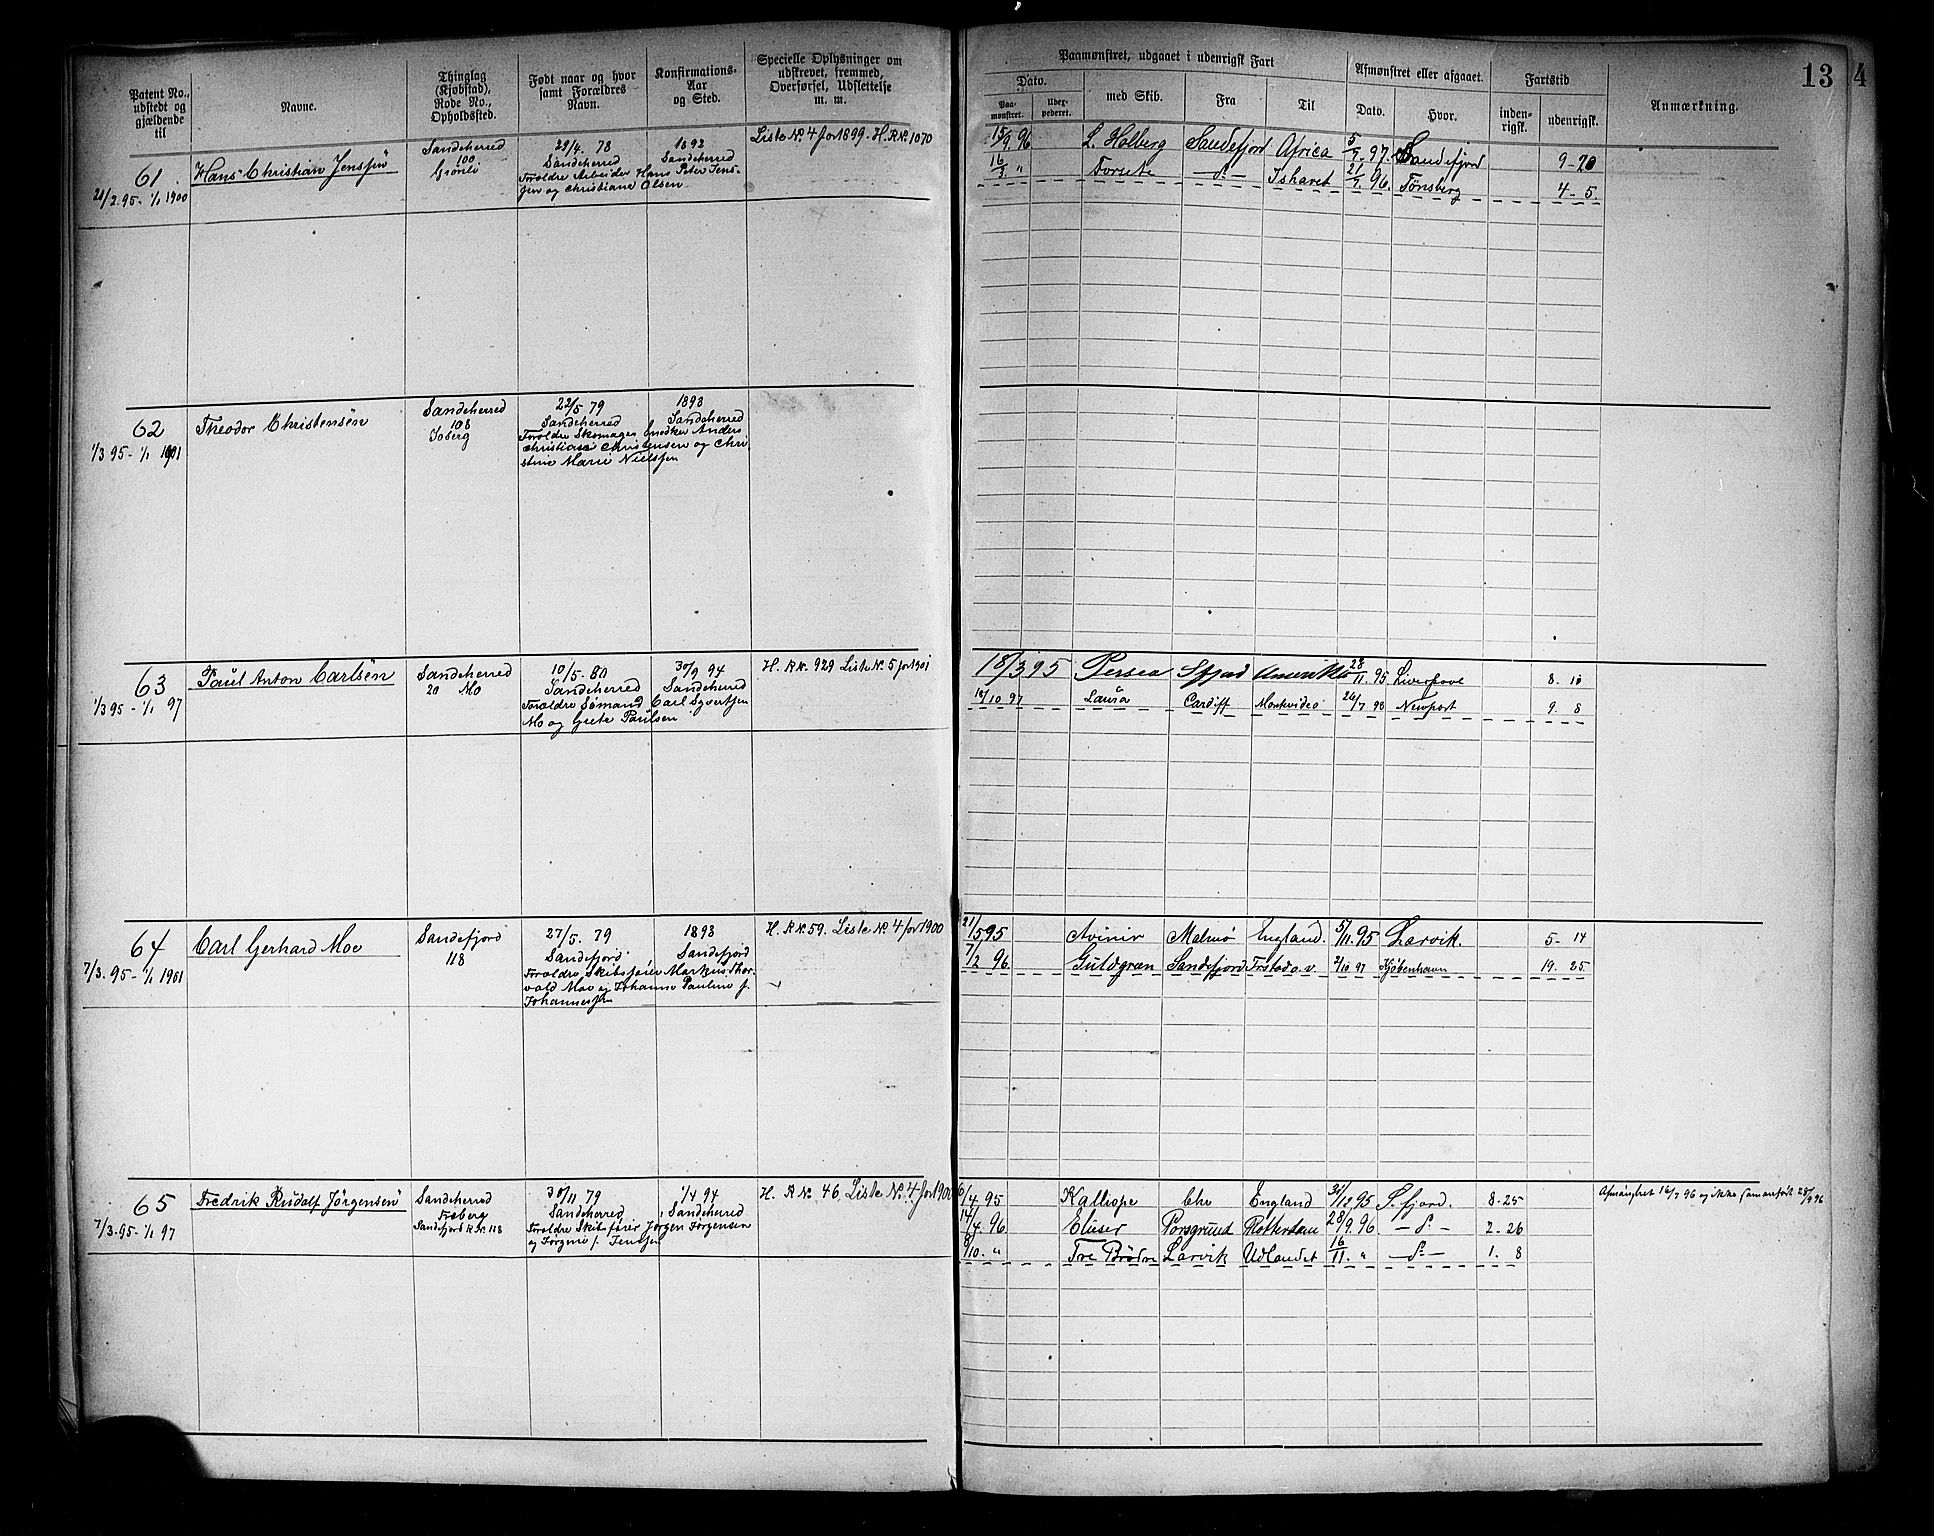 Patent No., udstedt og gjældende til
Navne.
Thinglag (Kjøbstad), Rode No., Opholdssted.
Født naar og hvor samt Forældres Navn.
Konfirmations-Aar og Sted.
Specielle Oplysninger om udskrevet, fremmed, Overførsel, Udslettelse m. m.
Paamønstret, udgaaet i udenrigsk Fart
Dato.
Paa-mønstret.
med Skib.
Fra
Til
Afmønstret eller afgaaet.
Dato.
Hvor.
Fartstid
inden-rigsk.
udenrigsk.
Anmærkning.
13
4
61
21/2.95 - 1/1 1900
Hans Christian Jenssen
Sandeherred
100
Grønli
29/4. 78
Sandeherred
Foræld­re Arbeider Hans Peter Jens-
sen og Christiane Olsen
1892
Sandeherred
Liste No. 4 for 1899. H.R No. 1070
15/9. 96 L. Holberg Sandefjord Africa 5/9. 97. Sandefjord 9-20
16/3 " Forsete - d. - Ishavet 21/9. 96. Tønsberg 4-5.
62
1/3 95 - 1/1 1901
Theodor Christensen
Sandeherred
108
22/5 79
Sandeherred
Forældre Skomager Anders
Christian Christensen og Chri
stine Marie Nielsen
1893
Sandeherred
63
1/3 95 - 1/1 97
Paul Anton Carlsen
Sandeherred
20 Mo
10/5. 80
Sandeherred
Forældre Sømand Carl Syvertsen
Mo og Grete Paulsen
30/9 94
Sandeherred
H. R No. 929 Liste No. 5 for 1901
18/3 95 Persea Sfjord Amerika 28/11. 95 Liverpool 8. 10
15/10 97 Laura Cardiff Montvideo 26/7 98 Newport 9. 8
64
7/3. 95 - 1/1 1901
Carl Gerhard Moe
Sandefjord
118
27/5. 79
Sandefjord
Forældre Skibsfører Markus Thor
vald Moe og Johanne Pauline f.
Johannessen
1893
Sandefjord
H. R No. 59. Liste No. 4 for 1900
21/5 95 Malmø England. 5/11. 95 Larvik. 5-14
7/2 96. Guldgran Sandefjord o. v. 2/10 97 Kjøbenhavn 19. 25.
65
7/3. 95 - 1/1 97
Fredrik Rudolf Jørgensen
Sandeherred
Sandefjord R.Nr. 118
30/11 79
Sandeherred
Forældre Skibsfører Jørgen Jørgensen
og Jørgine f. Jenssen
1/4 94
Sandeherred
H. R No. 46. Liste No. 4 for 1900
6/4. 95 Kalliope Chr England 31/12 95 S. fjord. 8-25
14/4. 96 Elieser Porsgrund Rotterdam 28/9. 96. - d. - 2-26
8/10. " Tre Brødre Larvik Udlandet 16/11. " - d. - 1. 8
Afmønstret 16/7 96 og ikke som anført 28/9 96